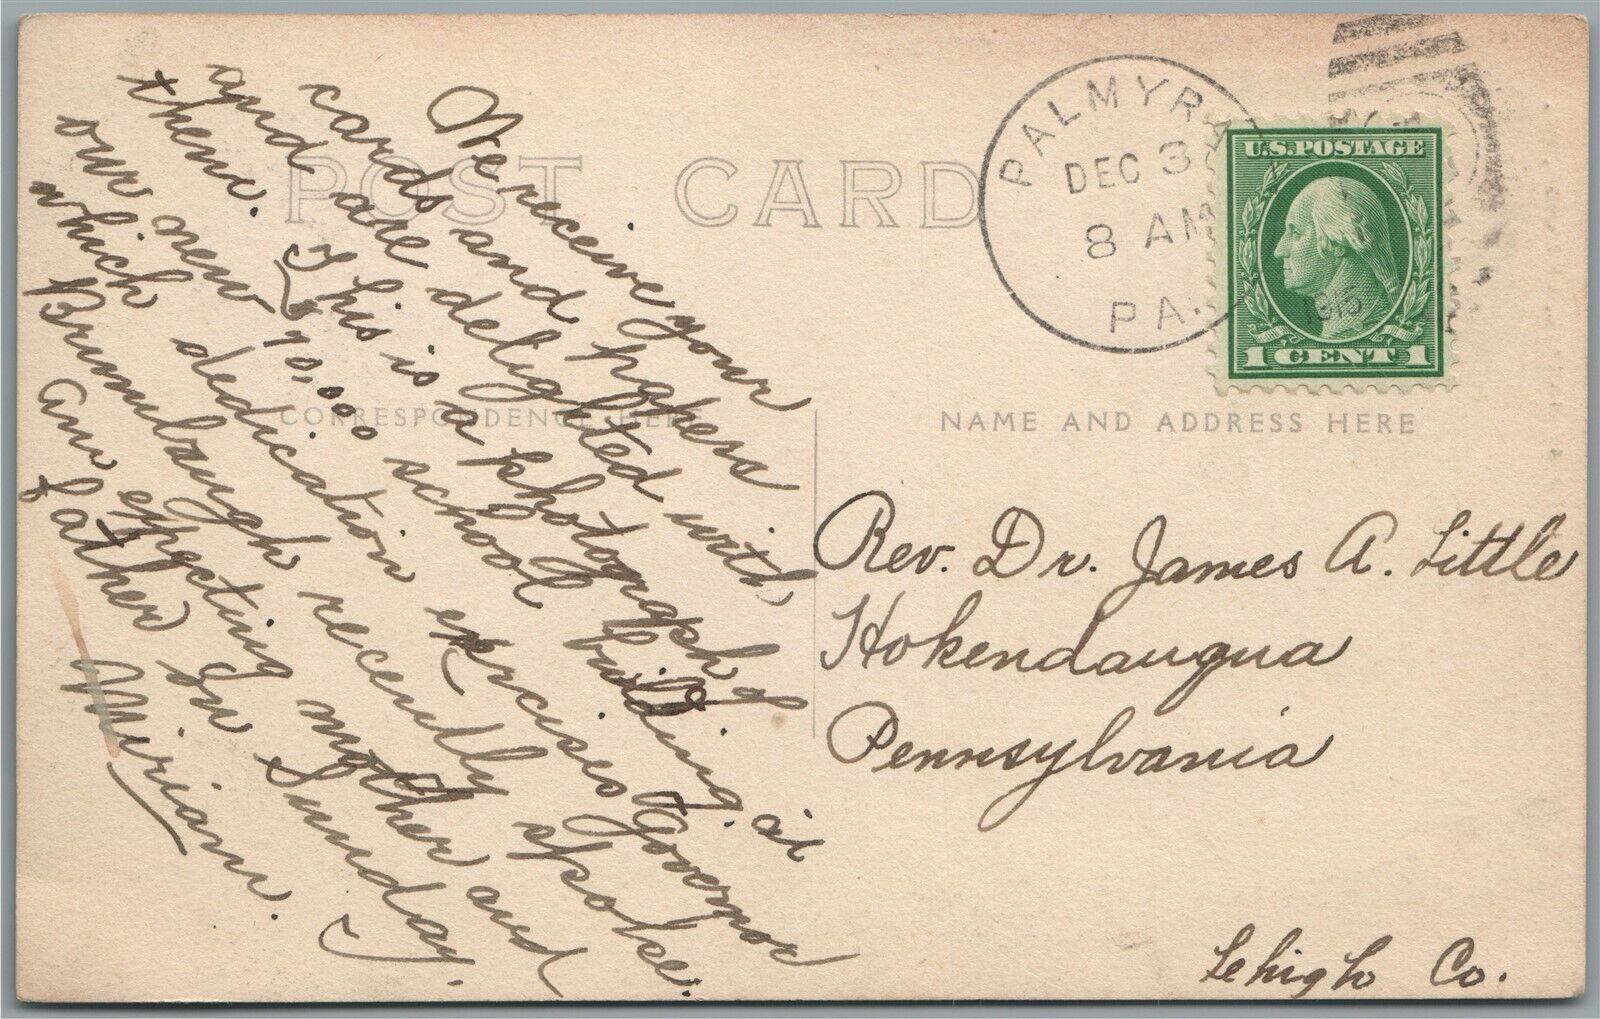 We receive your
cards and papers
and are delighted with
them. This is a photograph of
our new $90,000 school building, at
which dedication exercises Governor
Brumbaugh recently spoke.
Am expecting mother and
father on Sunday.
Miriam.
POST CARD
CORRESPONDENCE HERE
PALMYRA
DEC 3
8 AM
1915
PA.
U.S. POSTAGE
1 CENT 1
NAME AND ADDRESS HERE
Rev. Dr. James A. Little
Hokendauqua
Pennsylvania
Lehigh Co.